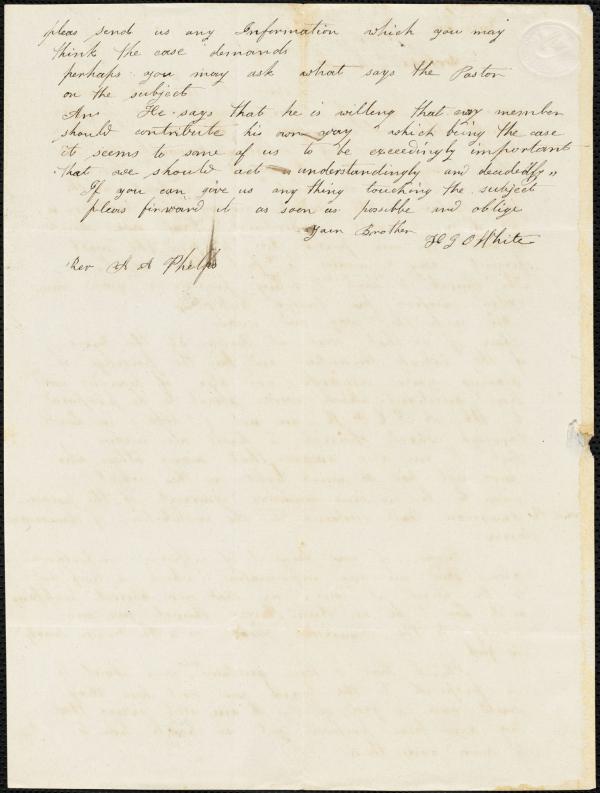 pleas send us any Information which you may
think the case demands
perhaps you may ask what says the Pastor
on the subject
Ans He says that he is willing that evry member
should contribute his own way " which being the case
it seems to some of us to be exceedingly important
that we should act understandingly and decidedly "
If you can give us any thing touching the subject
pleas forward it as soon as possible and oblige
Your Brother H G O White
Rev A A Phelps